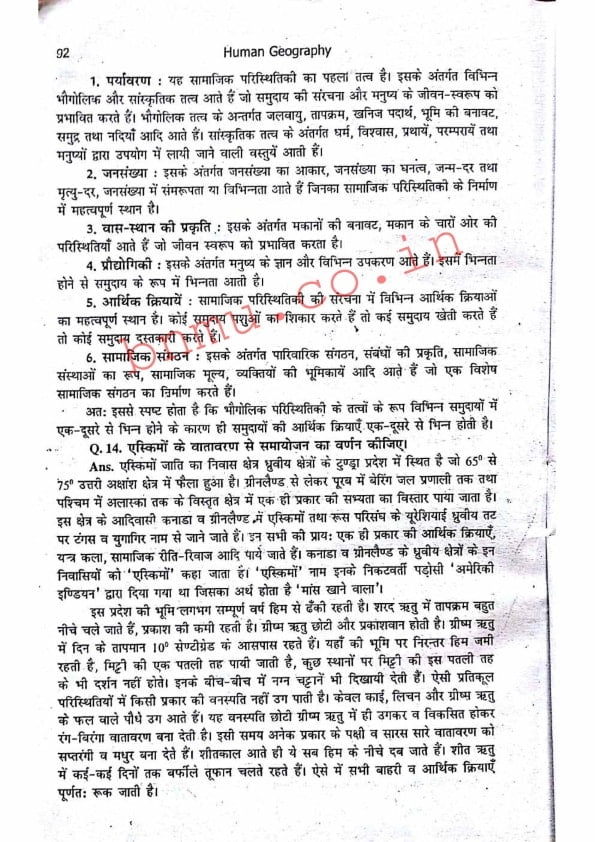 92
Human Geography
1. पर्यावरण : यह सामाजिक परिस्थितिकी का पहला तत्व है। इसके अंतर्गत विभिन्न
भौगोलिक और सांस्कृतिक तत्व आते हैं जो समुदाय की संरचना और मनुष्य के जीवन-स्वरूप को
प्रभावित करते हैं। भौगोलिक तत्व के अन्तर्गत जलवायु, तापक्रम, खनिज पदार्थ, भूमि की बनावट,
समुद्र तथा नदियाँ आदि आते हैं। सांस्कृतिक तत्व के अंतर्गत धर्म, विश्वास, प्रथायें, परम्परायें तथा
मनुष्यों द्वारा उपयोग में लायी जाने वाली वस्तुयें आती हैं।
2. जनसंख्या : इसके अंतर्गत जनसंख्या का आकार, जनसंख्या का घनत्व, जन्म-दर तथा
मृत्यु-दर, जनसंख्या में समरूपता या विभिन्नता आते हैं जिनका सामाजिक परिस्थितिकी के निर्माण
में महत्वपूर्ण स्थान है।
3. वास-स्थान की प्रकृति : इसके अंतर्गत मकानों की बनावट, मकान के चारों ओर की
परिस्थितियाँ आते हैं जो जीवन स्वरूप को प्रभावित करता है।
4. प्रौद्योगिकी : इसके अंतर्गत मनुष्य के ज्ञान और विभिन्न उपकरण आते हैं। इसमें भिन्नता
होने से समुदाय के रूप में भिन्नता आती है।
5. आर्थिक क्रियायें : सामाजिक परिस्थितिकी की संरचना में विभिन्न आर्थिक क्रियाओं
का महत्वपूर्ण स्थान है। कोई समुदाय पशुओं का शिकार करते हैं तो कई समुदाय खेती करते हैं
तो कोई समुदाय दस्तकारी करते हैं।
6. सामाजिक संगठन : इसके अंतर्गत पारिवारिक संगठन, संबंधों की प्रकृति, सामाजिक
संस्थाओं का रूप, सामाजिक मूल्य, व्यक्तियों की भूमिकायें आदि आते हैं जो एक विशेष
सामाजिक संगठन का निर्माण करते हैं।
अत: इससे स्पष्ट होता है कि भौगोलिक परिस्थितिकी के तत्वों के रूप विभिन्न समुदायों में
एक-दूसरे से भिन्न होने के कारण ही समुदायों की आर्थिक क्रियाएँ एक-दूसरे से भिन्न होती है।
Q. 14. एस्किमों के वातावरण से समायोजन का वर्णन कीजिए।
Ans. एस्किमों जाति का निवास क्षेत्र ध्रुवीय क्षेत्रों के टुण्ड्रा प्रदेश में स्थित है जो 65⁰ से
75⁰ उत्तरी अक्षांश क्षेत्र में फैला हुआ है। ग्रीनलैण्ड से लेकर पूरब में बेरिंग जल प्रणाली तक तथा
पश्चिम में अलास्का तक के विस्तृत क्षेत्र में एक ही प्रकार की सभ्यता का विस्तार पाया जाता है।
इस क्षेत्र के आदिवासी कनाडा व ग्रीनलैण्ड में एस्किमों तथा रूस परिसंघ के यूरेशियाई ध्रुवीय तट
पर टंगस व युगागिर नाम से जाने जाते हैं। इन सभी की प्राय: एक ही प्रकार की आर्थिक क्रियाएँ,
यन्त्र कला, सामाजिक रीति-रिवाज आदि पाये जाते हैं। कनाडा व ग्रीनलैण्ड के ध्रुवीय क्षेत्रों के इन
निवासियों को 'एस्किमों' कहा जाता है। 'एस्किमों' नाम इनके निकटवर्ती पड़ोसी 'अमेरिकी
इण्डियन' द्वारा दिया गया था जिसका अर्थ होता है 'मांस खाने वाला'।
इस प्रदेश की भूमि लगभग सम्पूर्ण वर्ष हिम से ढँकी रहती है। शरद ऋतु में तापक्रम बहुत
नीचे चले जाते हैं, प्रकाश की कमी रहती है। ग्रीष्म ऋतु छोटी और प्रकाशवान होती है। ग्रीष्म ऋतु
में दिन के तापमान 10⁰ सेण्टीग्रेड के आसपास रहते हैं। यहाँ की भूमि पर निरन्तर हिम जमी
रहती है, मिट्टी की एक पतली तह पायी जाती है, कुछ स्थानों पर मिट्टी की इस पतली तह
के भी दर्शन नहीं होते। इनके बीच-बीच में नग्न चट्टानें भी दिखायी देती हैं। ऐसी प्रतिकूल
परिस्थितियों में किसी प्रकार की वनस्पति नहीं उग पाती है। केवल काई, लिचन और ग्रीष्म ऋतु
के फल वाले पौधे उग आते हैं। यह वनस्पति छोटी ग्रीष्म ऋतु में ही उगकर व विकसित होकर
रंग-बिरंगा वातावरण बना देती है। इसी समय अनेक प्रकार के पक्षी व सारस सारे वातावरण को
सप्तरंगी व मधुर बना देते हैं। शीतकाल आते ही ये सब हिम के नीचे दब जाते हैं। शीत ऋतु
में कई-कई दिनों तक बर्फीले तूफान चलते रहते हैं। ऐसे में सभी बाहरी व आर्थिक क्रियाएँ
पूर्णत: रूक जाती है।
bnmu.co.in